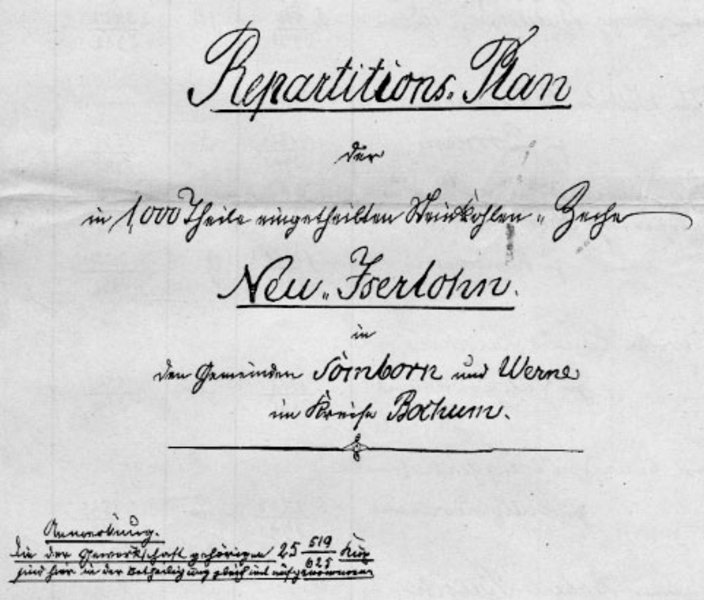 Repartitions-Plan
der
in 1,000 Theile eingetheilten Steinkohlen-Zeche
Neu-Iserlohn.
in
den Gemeinden Sömborn und Werne
im Kreise Bochum.
Anmerkung.
Die der Gewerkschaft gehörigen 25 519/625 Kux
sind hier in der Betheiligung gleich mit aufgenommen